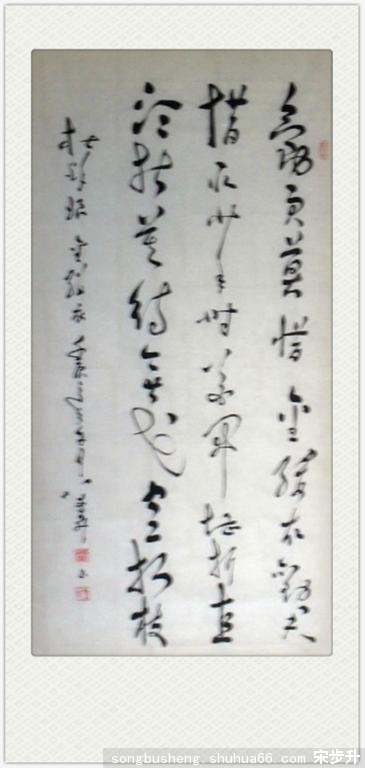 勸君莫惜金縷衣勸君
惜取少年時花開堪折直
須折莫待無花空折枝
杜秋娘金縷衣
songbusheng.shuhua66.com 宋步升